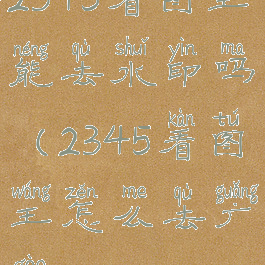 2345看图王
néng qù shuǐ yìn ma
能去水印吗
kàn tú
(2345看图
wáng zěn me qù guǎng
王怎么去广